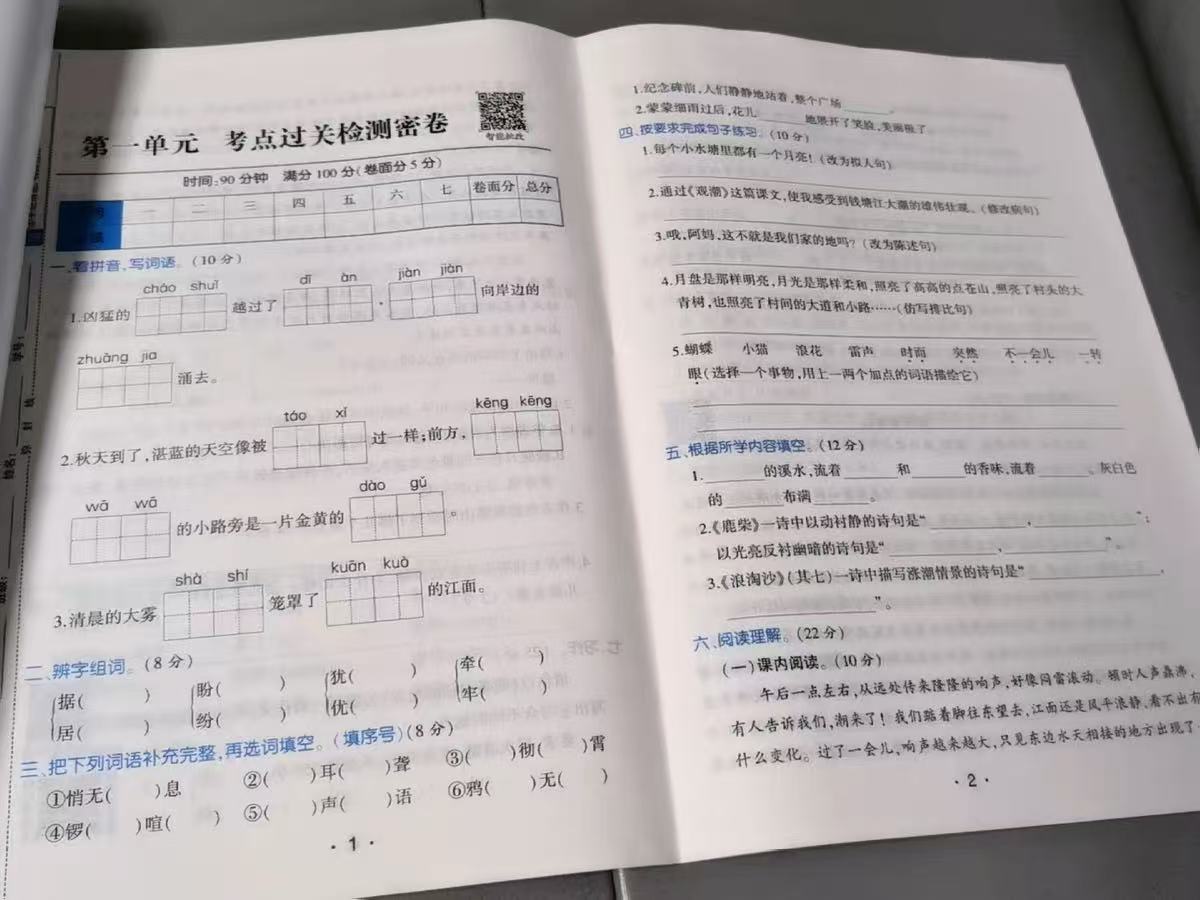 第一单元 考点过关检测密卷
智能批改
时间:90分钟 满分100分(卷面分5分)
一 二 三 四 五 六 七 卷面分 总分
一、看拼音,写词语。(10分)
cháo shuǐ dī àn jiàn jiàn
1.凶猛的 越过了 , 向岸边的
zhuāng jia
涌去。
táo xǐ kēng kēng
2.秋天到了,湛蓝的天空像被 过一样;前方,
wā wā dào gǔ
的小路旁是一片金黄的 。
shà shí kuān kuò
3.清晨的大雾 笼罩了 的江面。
二、辨字组词。(8分)
据( ) 盼( ) 犹( ) 牵( )
居( ) 纷( ) 优( ) 牢( )
三、把下列词语补充完整,再选词填空。(填序号)(8分)
①悄无( )息 ②( )耳( )聋 ③( )彻( )霄
④锣( )喧( ) ⑤( )声( )语 ⑥鸦( )无( )
· 1 ·
1.纪念碑前,人们静静地站着,整个广场 。
2.蒙蒙细雨过后,花儿 地展开了笑脸,美丽极了
四、按要求完成句子练习。(10分)
1.每个小水塘里都有一个月亮!(改为拟人句)
2.通过《观潮》这篇课文,使我感受到钱塘江大潮的雄伟壮观。(修改病句)
3.哦,阿妈,这不就是我们家的地吗?(改为陈述句)
4.月盘是那样明亮,月光是那样柔和,照亮了高高的点苍山,照亮了村头的大
青树,也照亮了村间的大道和小路……(仿写排比句)
5.蝴蝶 小猫 浪花 雷声 时而 突然 不一会儿 一转
眼(选择一个事物,用上一两个加点的词语描绘它)
五、根据所学内容填空。(12分)
1. 的溪水,流着 和 的香味,流着 。灰白色
的 布满 。
2.《鹿柴》一诗中以动衬静的诗句是“ , ”;
以光亮反衬幽暗的诗句是“ , ”。
3.《浪淘沙》(其七)一诗中描写涨潮情景的诗句是“ ,
”。
六、阅读理解。(22分)
(一)课内阅读。(10分)
午后一点左右,从远处传来隆隆的响声,好像闷雷滚动。顿时人声鼎沸,
有人告诉我们,潮来了!我们踮着脚往东望去,江面还是风平浪静,看不出有
什么变化。过了一会儿,响声越来越大,只见东边水天相接的地方出现了
· 2 ·